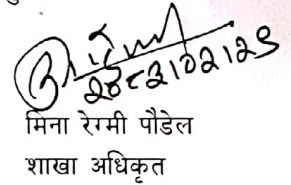 २०८२।०२।२९
मिना रेग्मी पौडेल
शाखा अधिकृत